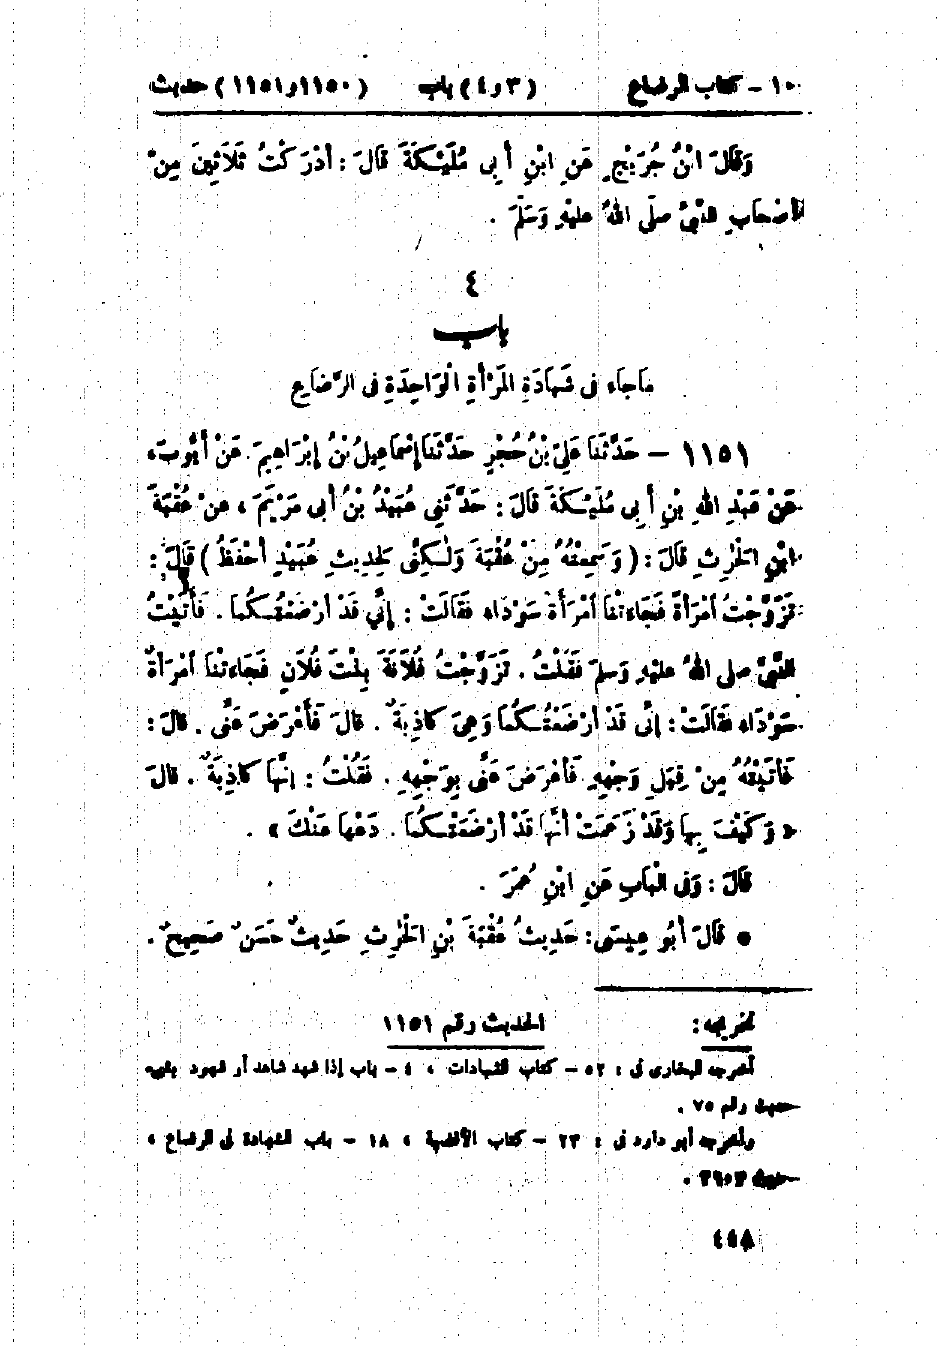 ١٠ - كتاب الرضاع (٣ و ٤) باب (١١٥٠ و ١١٥١) حديث
وَقَالَ ابْنُ جُرَيْجٍ عَنِ ابْنِ أَبِي مُلَيْكَةَ قَالَ : أَدْرَكْتُ ثَلَاثِينَ مِنْ
أَصْحَابِ النَّبِيِّ صَلَّى اللهُ عَلَيْهِ وَسَلَّمَ .
٤
باب
مَا جَاءَ فِي شَهَادَةِ الْمَرْأَةِ الْوَاحِدَةِ فِي الرَّضَاعِ
١١٥١ — حَدَّثَنَا عَلِيُّ بْنُ حُجْرٍ حَدَّثَنَا إِسْمَاعِيلُ بْنُ إِبْرَاهِيمَ . عَنْ أَيُّوبَ ،
عَنْ عَبْدِ اللهِ بْنِ أَبِي مُلَيْكَةَ قَالَ : حَدَّثَنِي عُبَيْدُ بْنُ أَبِي مَرْيَمَ ، عَنْ عُقْبَةَ
ابْنِ الْحَرِثِ قَالَ : ( وَسَمِعْتُهُ مِنْ عُقْبَةَ وَلَـكِنِّي لِحَدِيثِ عُبَيْدٍ أَحْفَظُ ) قَالَ :
تَزَوَّجْتُ امْرَأَةً فَجَاءَتْنَا امْرَأَةٌ سَوْدَاءُ فَقَالَتْ : إِنِّي قَدْ أَرْضَعْتُـكُمَا . فَأَتَيْتُ
النَّبِيَّ صلى اللهُ عَلَيْهِ وَسَلَّمَ فَقُلْتُ . تَزَوَّجْتُ فُلَانَةَ بِنْتَ فُلَانٍ فَجَاءَتْنَا امْرَأَةٌ
سَوْدَاءُ فَقَالَتْ : إِنِّي قَدْ أَرْضَعْتُـكُمَا وَهِيَ كَاذِبَةٌ . قَالَ فَأَعْرَضَ عَنِّي . قَالَ :
فَأَتَيْتُهُ مِنْ قِبَلِ وَجْهِهِ فَأَعْرَضَ عَنِّي بِوَجْهِهِ . فَقُلْتُ : إِنَّهَا كَاذِبَةٌ . قَالَ
« وَكَيْفَ بِهَا وَقَدْ زَعَمَتْ أَنَّهَا قَدْ أَرْضَعَتْـكُمَا . دَعْهَا عَنْكَ » .
قَالَ : وَفِي الْبَابِ عَنِ ابْنِ عُمَرَ .
• قَالَ أَبُو عِيسَى : حَدِيثُ عُقْبَةَ بْنِ الْحَرِثِ حَدِيثٌ حَسَنٌ صَحِيحٌ .
تخريجه : الحديث رقم ١١٥١
أخرجه البخارى فى : ٥٢ - كتاب الشهادات ، ٤ - باب إذا شهد شاهد أو شهود بشىء
حديث رقم ٧٥ .
وأخرجه أبو داود فى : ٢٣ - كتاب الأقضية ، ١٨ - باب الشهادة فى الرضاع ،
حديث ٣٦٠٣ .
٤٤٨